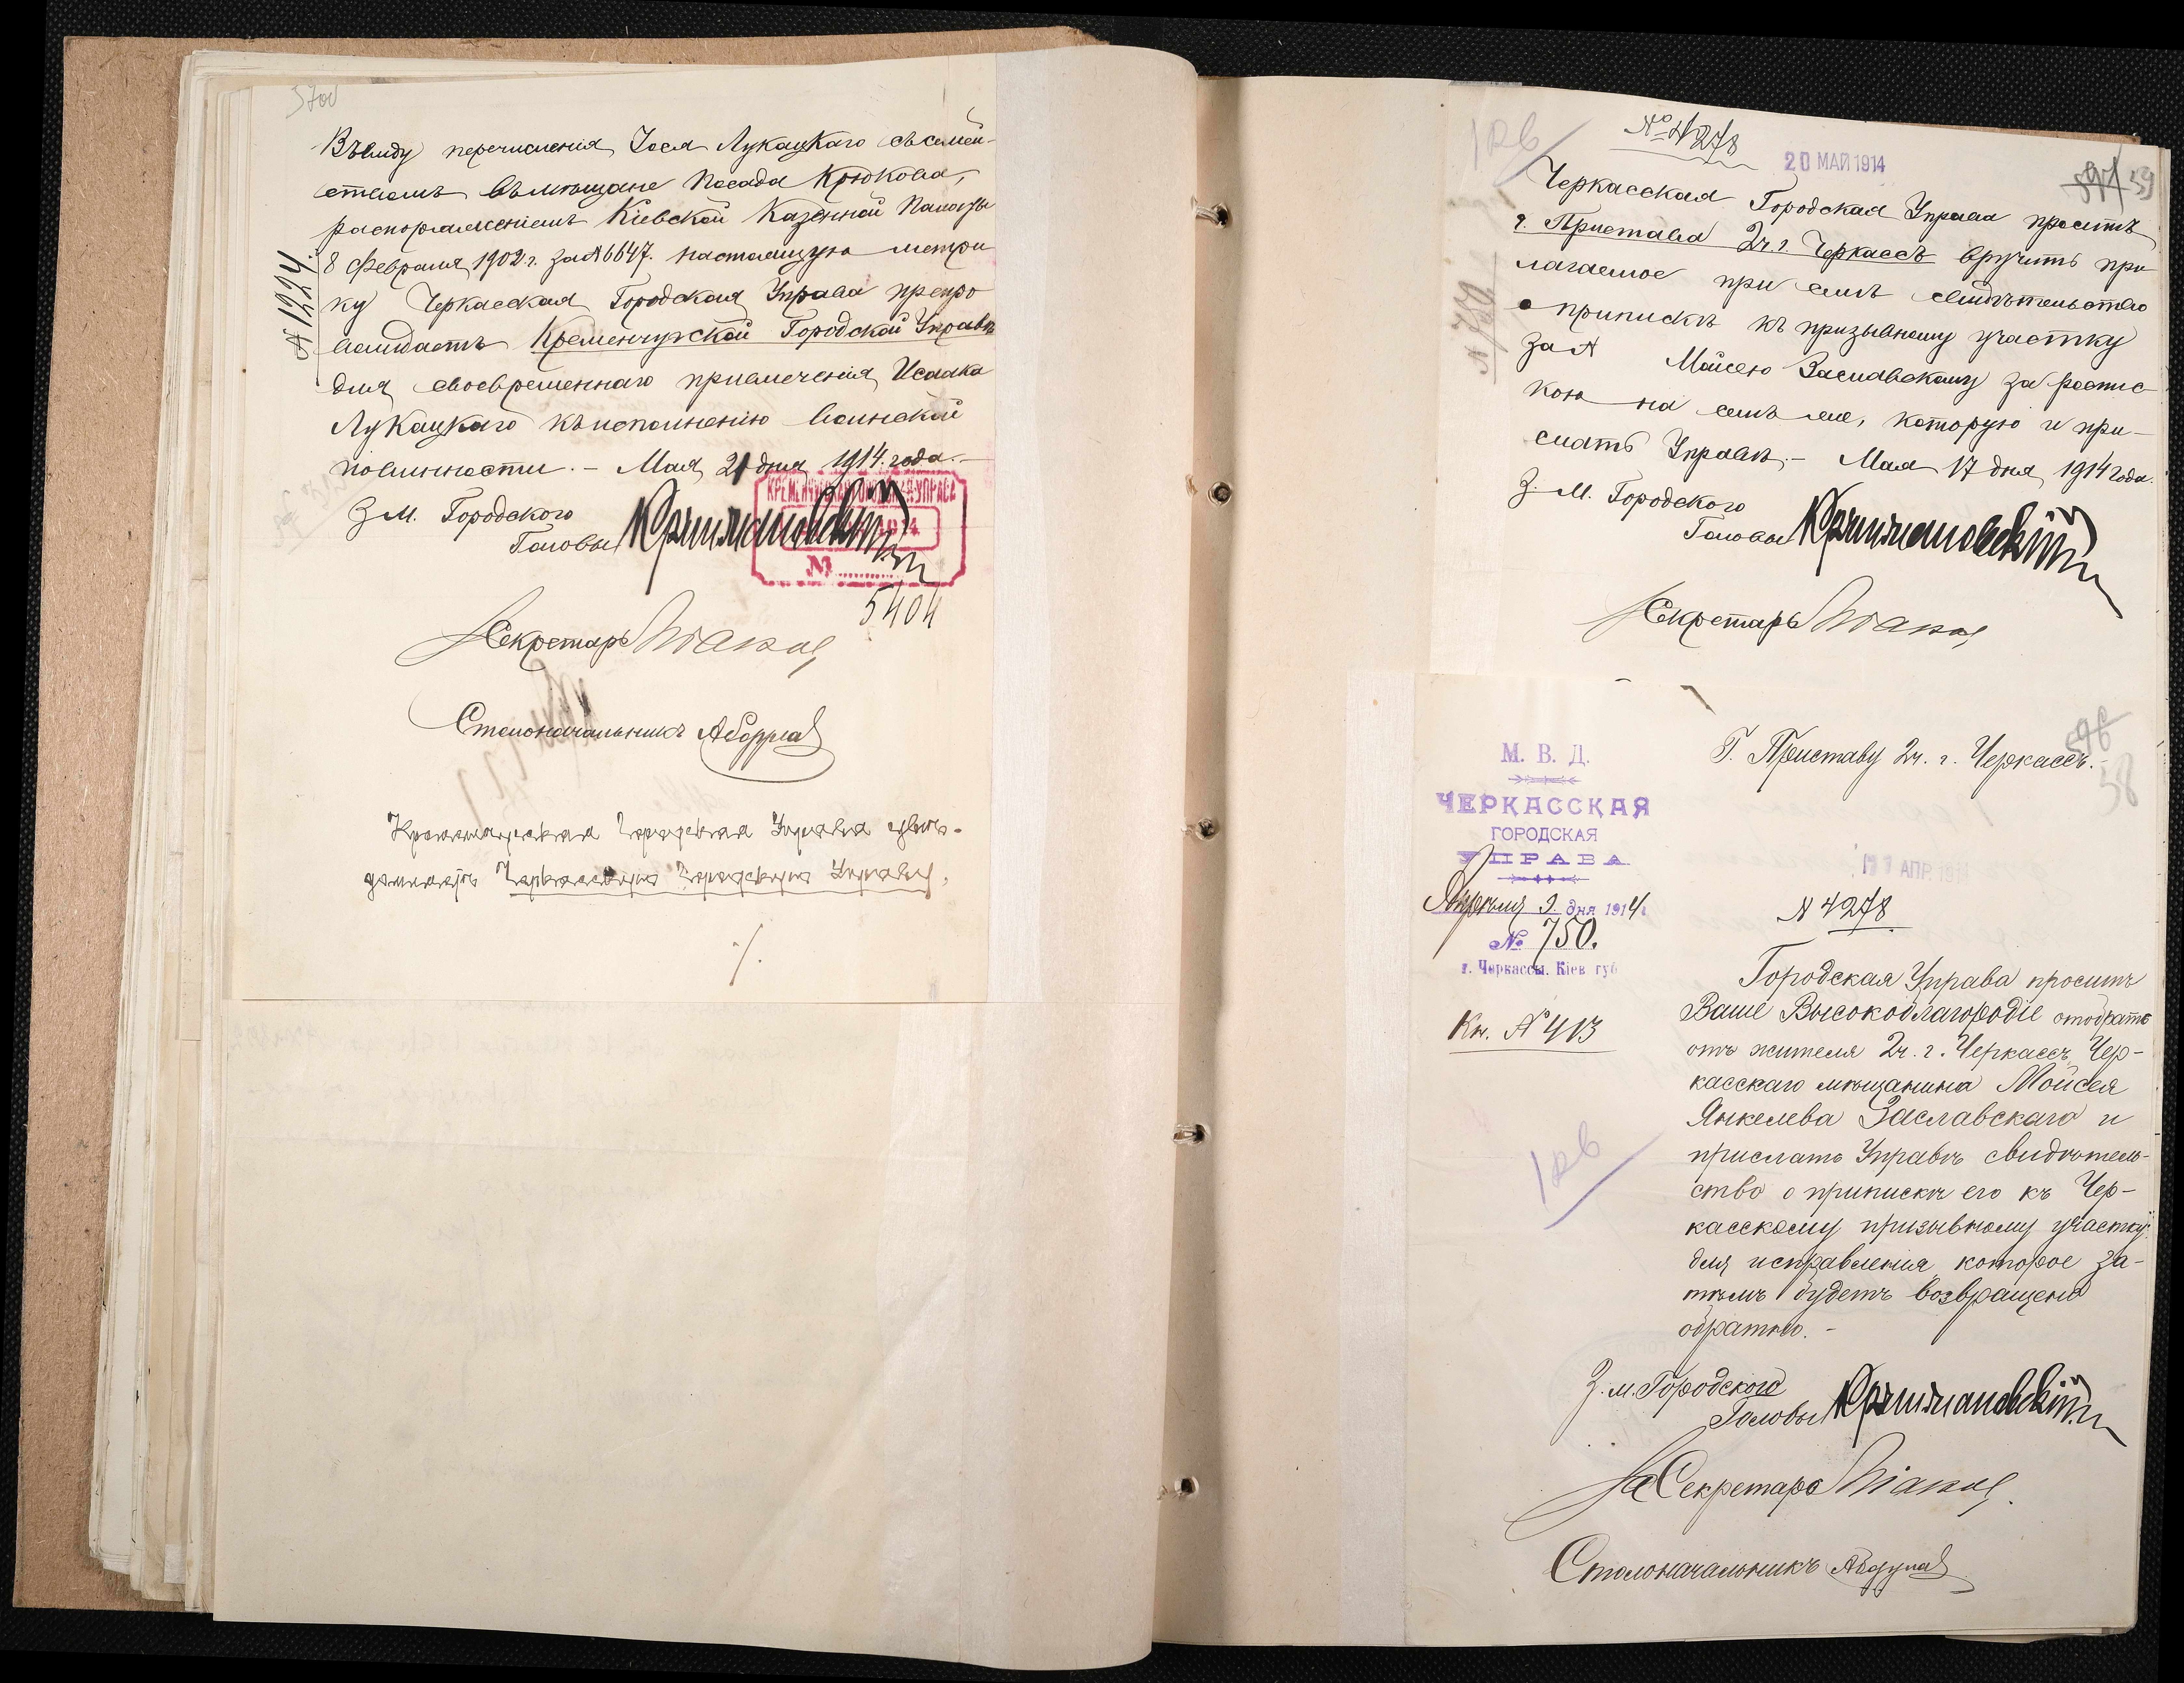 570об
Въ виду перечисленія Іося Лукацкаго съ семей-
ствомъ въ мѣщане посада Крюкова,
распоряженіемъ Кіевской Казенной Палаты
8 Февраля 1902 г. за № 6647. настоящую метри
ку Черкасская Городская Управа препро
вождаетъ Кременчугской Городской Управѣ
для своевременнаго привлеченія Исаака
Лукацкаго къ исполненію воинской
повинности. – Мая 21 дня 1914 года. –
№ 1224.
З м. Городского
Головы
КРЕМЕНЧУГСКАЯ ГОРОДСКАЯ УПРАВА
№
5404
Секретарь
Столоначальникъ
Кременчугская Городская Управа
Черкасскую Городскую Управу.
126
№ 4278
20 МАЙ 1914
597 59
Черкасская Городская Управа проситъ
г. Пристава 2 ч. г. Черкассъ вручить при
лагаемое при семъ свидѣтельство
о припискѣ къ призывному участку
за № Мойсею Заславскому за роспис
кою на семъ же, которую и при-
слать Управѣ. – Мая 17 дня 1914 года.
№ 750
З. м. Городского
Головы
Секретарь
М. В. Д.
ЧЕРКАССКАЯ
ГОРОДСКАЯ
УПРАВА
Апрѣля 9 дня 1914 г.
№ 750.
г. Черкассы. Кіев. губ
Кн. № 413
126
Г. Приставу 2 ч. г. Черкассъ. –
596
58
АПР. 191
№ 4278
Городская Управа проситъ
Ваше Высокоблагородіе отобрать
отъ жителя 2 ч. г. Черкассъ, Чер-
касскаго мѣщанина Мойсея
Янкелева Заславскаго и
прислать Управѣ свидѣтель-
ство о припискѣ его къ Чер-
касскому призывному участку
для исправленія, которое за-
тѣмъ будетъ возвращено
обратно. –
З. м. Городского
Головы
За Секретаря
Столоначальникъ